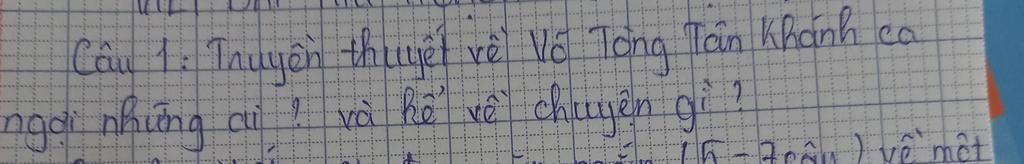 Câu 1: Truyền thuyết về Võ Tòng Tân Khánh ca
ngợi những ai? và kể về chuyện gì?
(5-7 câu) về một